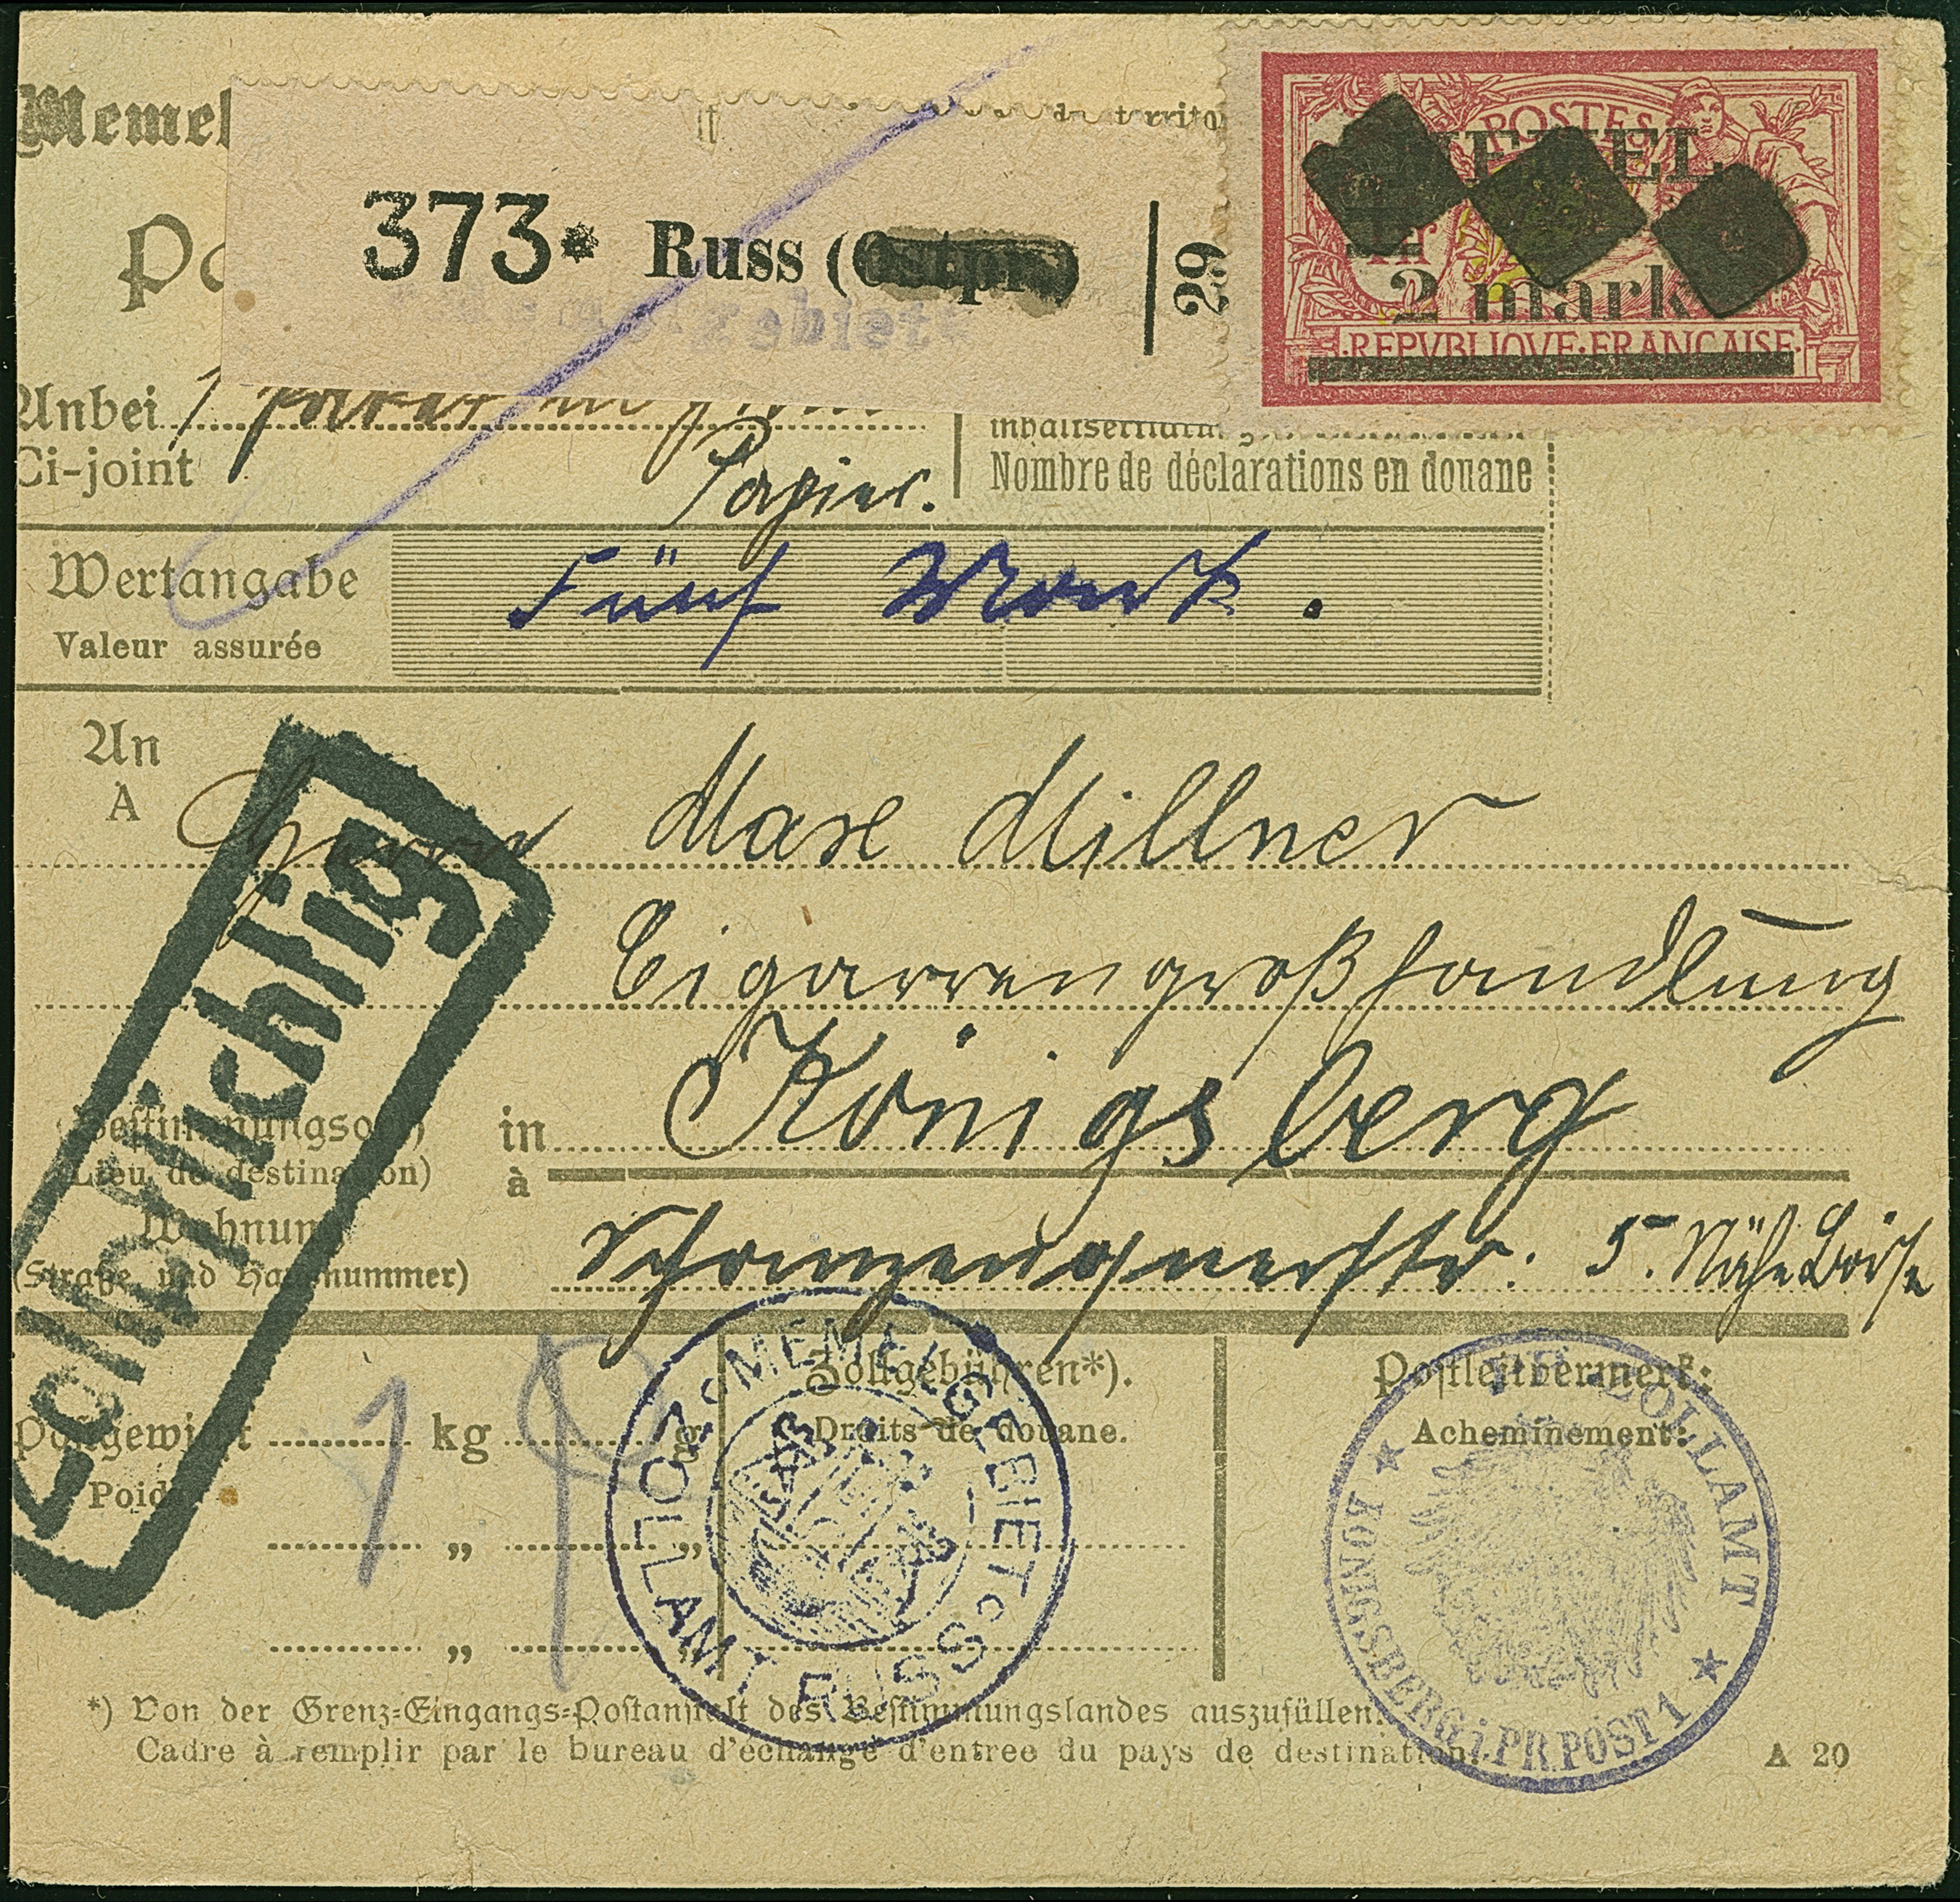 Memel
du territo
POSTES
MEMEL
373* Russ (Ostpr.)
29
2 mark
REPVBLIQVE·FRANÇAISE
Memelgebiet
Anbei 1
Ci-joint
Papier.
Nombre de déclarations en douane
Wertangabe
Valeur assurée
Fünf Mark.
An
A
Herrn Max Millner
Cigarrengroßhandlung
Zollpflichtig
(Bestimmungsort) in Königsberg
(Lieu de destination) à
Wohnung
(Straße und Hausnummer) Schanzenquerstr. 5. Nähe Börse
Zollgebühren*).
Droits de douane.
Postleitvermerk:
Acheminement:
Postgewicht 1 kg g
Poids
" "
" "
MEMELGEBIET
ZOLLAMT RUSS
ZOLLAMT
KÖNIGSBERG i.PR. POST 1
*) Von der Grenz-Eingangs-Postanstalt des Bestimmungslandes auszufüllen.
Cadre à remplir par le bureau d'échange d'entree du pays de destination.
A 20